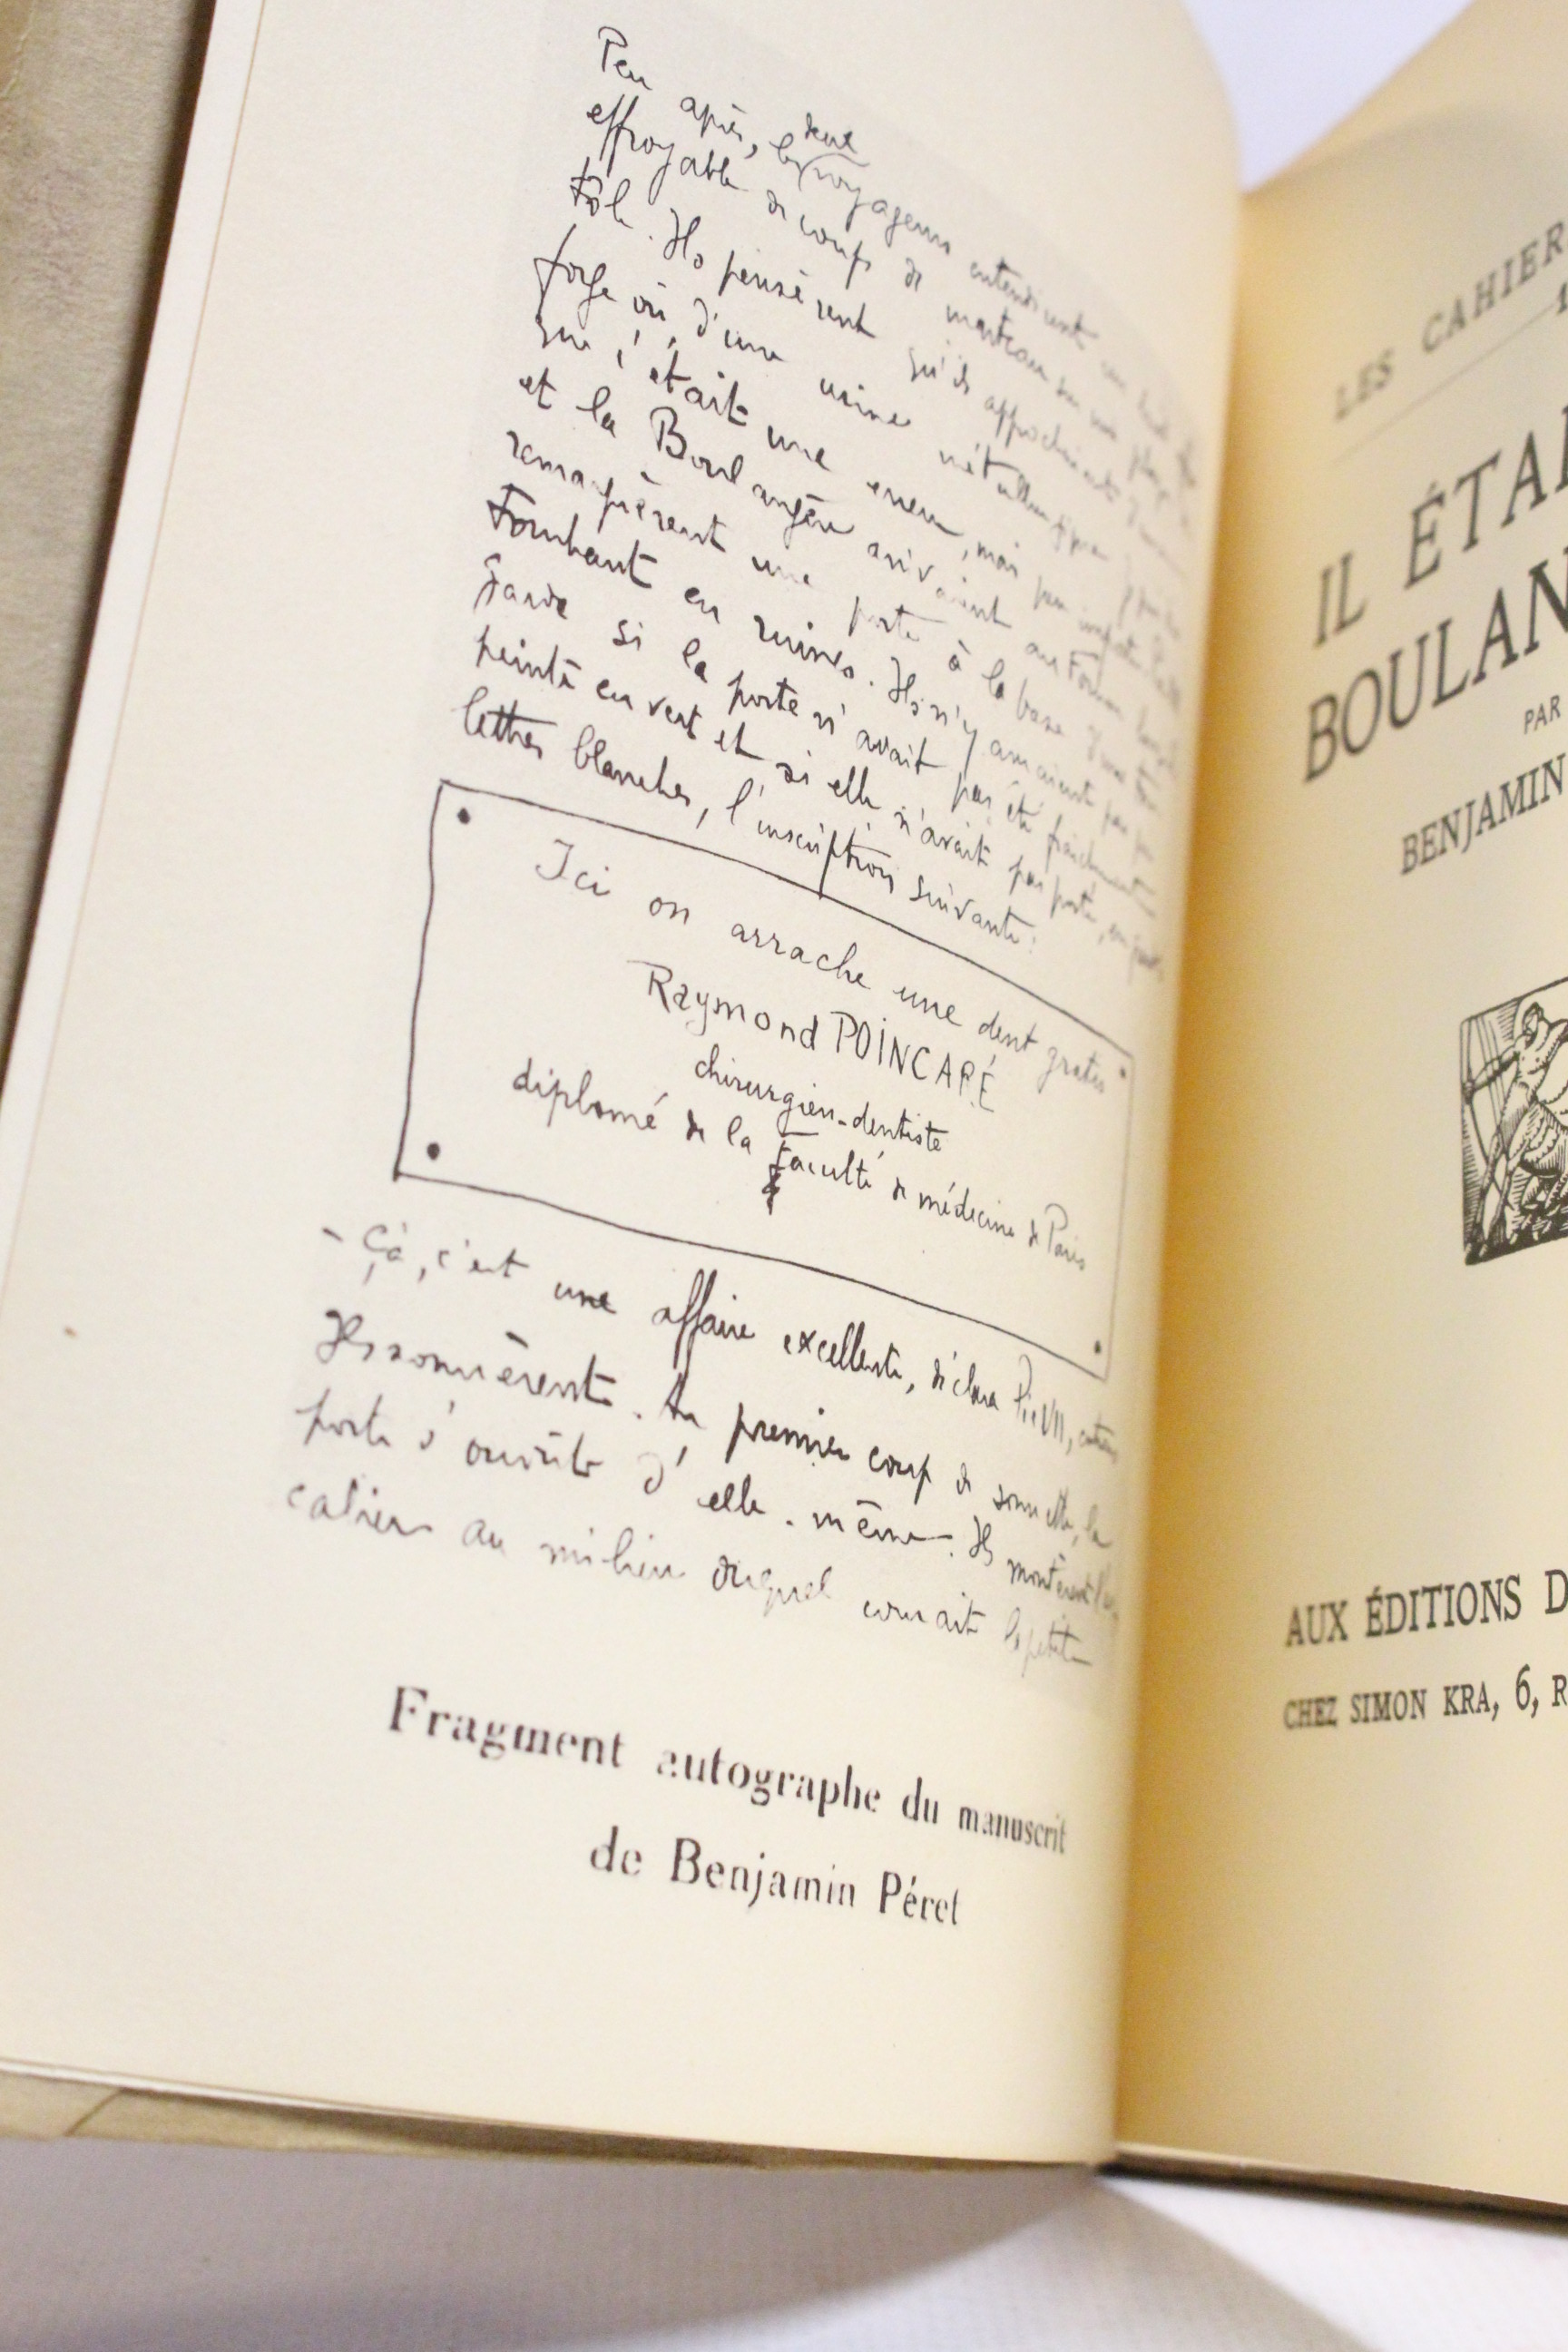 Peu après, les deux voyageurs entendirent un bruit
effroyable de coups de marteau sur une plaque de
tôle. Ils pensèrent qu'ils approchaient d'une
forge ou d'une usine métallurgique
que c'était une erreur, mais peu importe
et la Boulangère arrivaient
remarquèrent une porte à la base d'une tour
tombant en ruines. Ils n'y auraient pas pris
garde si la porte n'avait pas été fraîchement
peinte en vert et si elle n'avait pas porté, en
lettres blanches, l'inscription suivante :
Ici on arrache une dent gratis
Raymond POINCARÉ
chirurgien-dentiste
diplomé de la Faculté de médecine de Paris
- Çà, c'est une affaire excellente, déclara Pie VII, entrons
Ils sonnèrent. Au premier coup de sonnette, la
porte s'ouvrit d'elle-même. Ils montèrent
calier au milieu duquel courait
Fragment autographe du manuscrit
de Benjamin Péret
LES CAHIER
IL ÉTAI
BOULAN
PAR
BENJAMIN
AUX ÉDITIONS D
CHEZ SIMON KRA, 6, R